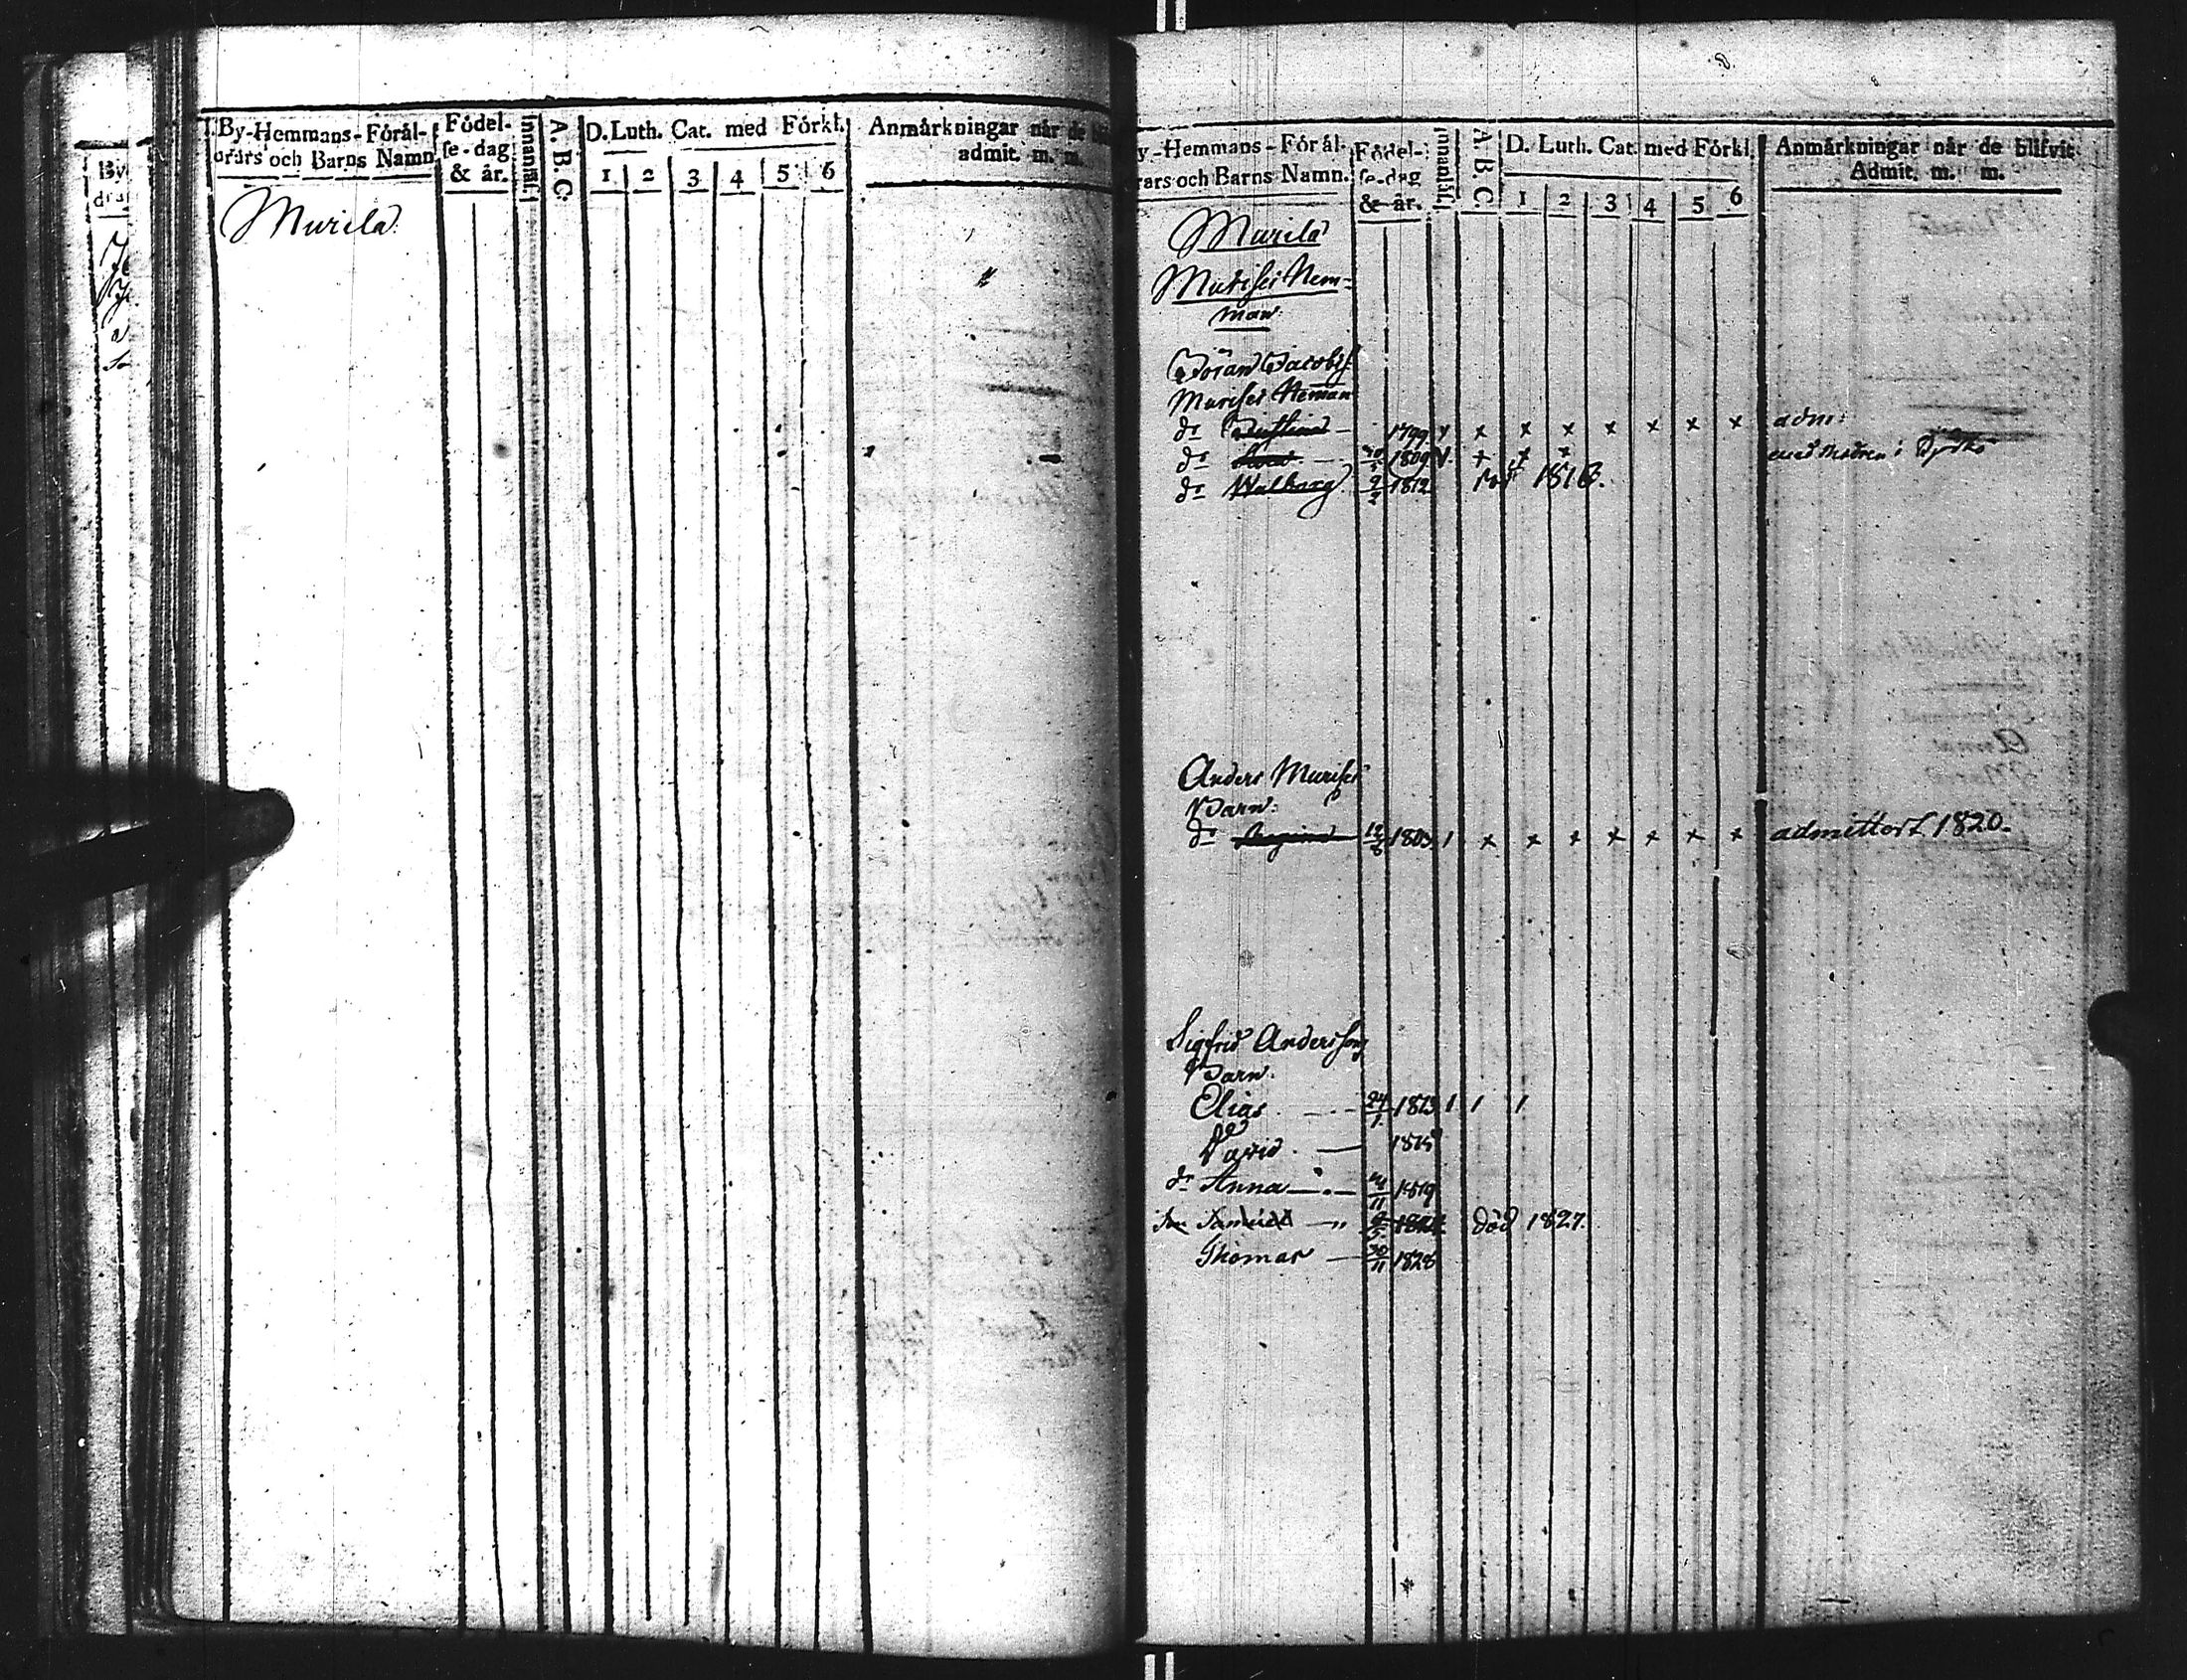 By-Hemmans-Förål-
drars och Barns Namn
Födel-
se-dag
& år.
Innanläs.
A. B. C.
D. Luth. Cat. med Förkl.
1 2 3 4 5 6
Anmärkningar når de
admit. m. m.
Murila
By
drar
y-Hemmans-Förål-
rars och Barns Namn.
Födel-
se-dag
& år.
innanläs.
A. B. C.
D. Luth. Cat. med Förkl.
1 2 3 4 5 6
Anmärkningar når de blifvit
Admit. m. m.
Murila
Murisei Hem-
man
Jöran Jacobss.
Murisei Heman
dr 1799 x x x x x x x adm:
dr 1809 x x x med Modren i
dr Walborg 9/2 1812 död 1813.
Anders Murisei
Barn:
dr Regina 12/8 1803 1 x x x x x x x admittert 1820.
Sigfrid Anderssons
Barn.
Elias 24/1 1813 1 1 1
David 1815
dr Anna 1819
Son Samuel död 1827.
Thomas 30/11 1828